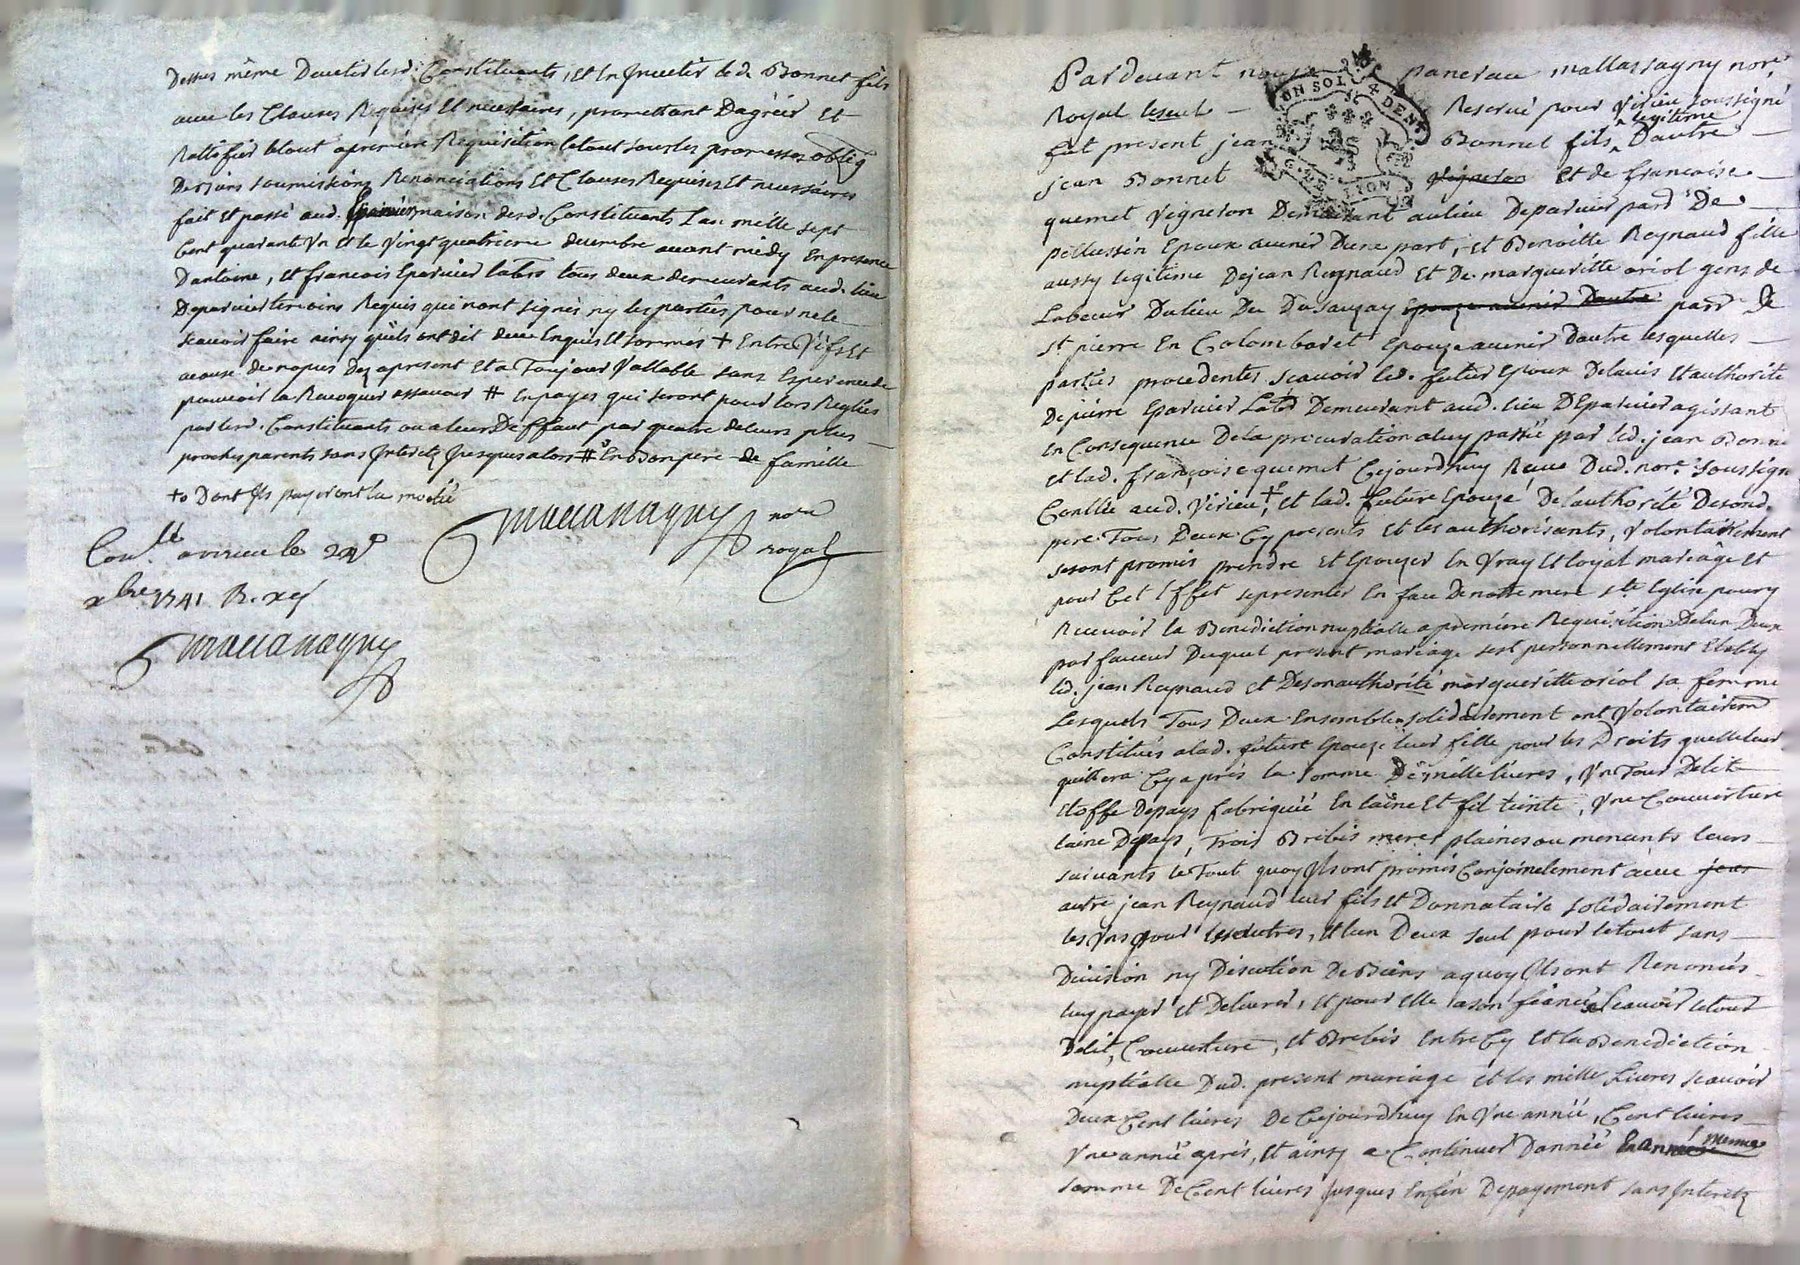 Dessus même Deueter lesd. Constituants, et en Jnuester le d. Bonnet fils
auec les Clauses Requises Et necessaires, promettant Dagréer Et
Rattifier le tout a premiere Requisition le tout sous les promesses oblig
De biens soumissions Renonciations Et Clauses Requises Et necessaires
fait Et passé aud. Eparuier maison desd. Constituants Lan mille sept
Cent quarant Vn et le Vingt quatrieme decembre auant midy En presence
Dantoine, et francois Eparuier labrs tous deux demeurants aud. lieu
Deparuier temoins Requis qui nont signés ny les parties pour ne le
scauoir faire ainsy quils ont dit de ce Enquis Et sommés + Entre Vifs Et
a cause de nopces Dez apresent Et a Toujour Vallable sans Esperence de
pouuoir la Reuoquer assauoir # En payes qui seront pour lors Reglés
par lesd. Constituants ou a leur Deffaut par quatre de leurs plus
proches parents sans Jnterets Jusques alors # En Bon pere de famille
+o Dont Jls payeront la moitié
maccanagny nore
royal
Con.lle a virieu le 24e
xbre 1741 R. xs
maccanagny
Pardeuant nous pancrace mallassagny nore
Royal le seul Reserué pour Virieu soussigné
fut present jean Bonnet fils legitime Dautre
jean Bonnet vigneron Et de francoise
quemet Vigneron Demeurant au lieu Deparuier parr De
pellussin Epoux auenir Dune part, et Benoitte Reynaud fille
aussy legitime Dejean Reynaud Et De margueritte oriol gens de
Labeur Du lieu De Du Sauzay Epouze auenir Dautre parr De
St pierre En Colombaret Epouze auenir Dautre lesquelles
parties procedentes scauoir led. futur Epoux De lauis Et authorité
De pierre Eparuier Labr Demeurant aud. lieu DEparuier agissant
En Consequence De la procuration a luy passée par led. jean Bonnet
et lad. françoise quemet Cejourdhuy Receue Dud. nore soussigné
Conllée aud. Virieu, + Et lad. future Epouze De lauthorité De sond.
pere Tous Deux Cy presents Et les authorisants, Volontairement
se sont promis prendre et Epouzer En Vray Et loyal mariage Et
pour Cet Effet se presenter En face De notre mere ste Eglise pour y
Receuoir la Benediction nuptialle a premiere Requisition De lun Deux
par faueur Duquel present mariage sest personnellement Etably
led. jean Reynaud et De son authorité margueritte oriol sa femme
Lesquels Tous Deux Ensemble solidairement ont Volontairemt
Constitués a lad. future Epouze leur fille pour les Droits quelle leur
quittera Cy apres la somme De mille liures, Vn Tour De lit
Etoffe De pays fabriquée En laine Et fil teinte, Vne Couuerture
laine De pays, Trois Brebis meres plaines ou menants leurs
suiuants le Tout quoy Jls ont promis Conjointement auec jean
autre jean Reynaud leur fils et Donnataire solidairement
les Vns pour les autres, Et lun Deux seul pour le tout sans
Diuision ny Discution De Biens a quoy Jls ont Renoncés
luy payer et Deliurer, Et pour Elle a son fiancé scauoir le tour
De lit, Couuerture, et Brebis Entre Cy Et la Benediction
nuptialle Dud. present mariage et les mille Liures scauoir
Deux Cent liures De Cejourdhuy En Vne année, Cent liures
Vne année aprés, Et ainsy a Continuer Dannée En année meme
somme De Cent liures Jusques Enfin De payement sans Jnterets